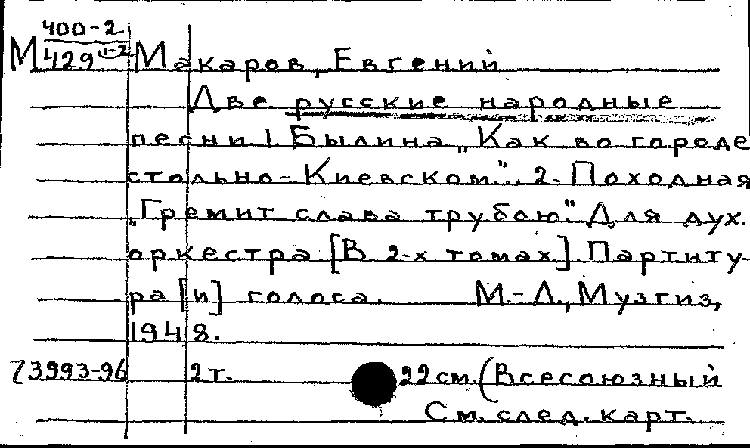 400-2
М 429 1-2 Макаров, Евгений
Две русские народные
песни 1. Былина „Как во городе
стольно-Киевском". 2. Походная
„Гремит слава трубою". Для дух.
оркестра [В 2-х томах] Партиту-
ра [и] голоса. М.-Л., Музгиз,
1948.
73993-96 2 т. 22 см. (Всесоюзный
См. след. карт.